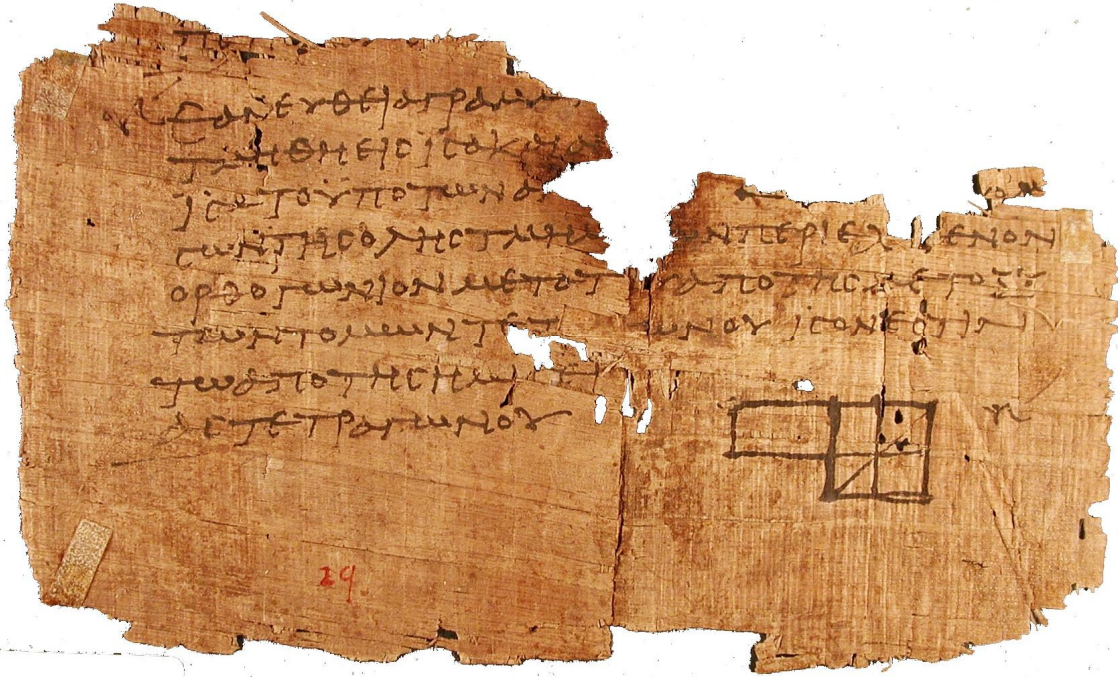 ΕΑΝΕΥΘΕΙΑΓΡΑΜΜ
ΤΜΗΘΗΕΙϹΙϹΑΚΑΙΑ
ΙϹΑΤΟΥΠΟΤΩΝΑ
ϹΩΝΤΗϹΟΛΗϹΤΜΗΜ ΩΝΠΕΡΙΕΧ ΕΝΟΝ
ΟΡΘΟΓΩΝΙΟΝΜΕΤΑΤ ΑΠΟΤΗϹΜΕΤΟΞΥ
ΤΩΝΤΟΜΩΝΤΕΤ ΩΝΟΥΙϹΟΝΕϹΤΙΝ
ΤΩΑΠΟΤΗϹΗΜ
ΑϹΤΕΤΡΑΓΩΝΟΥ
29